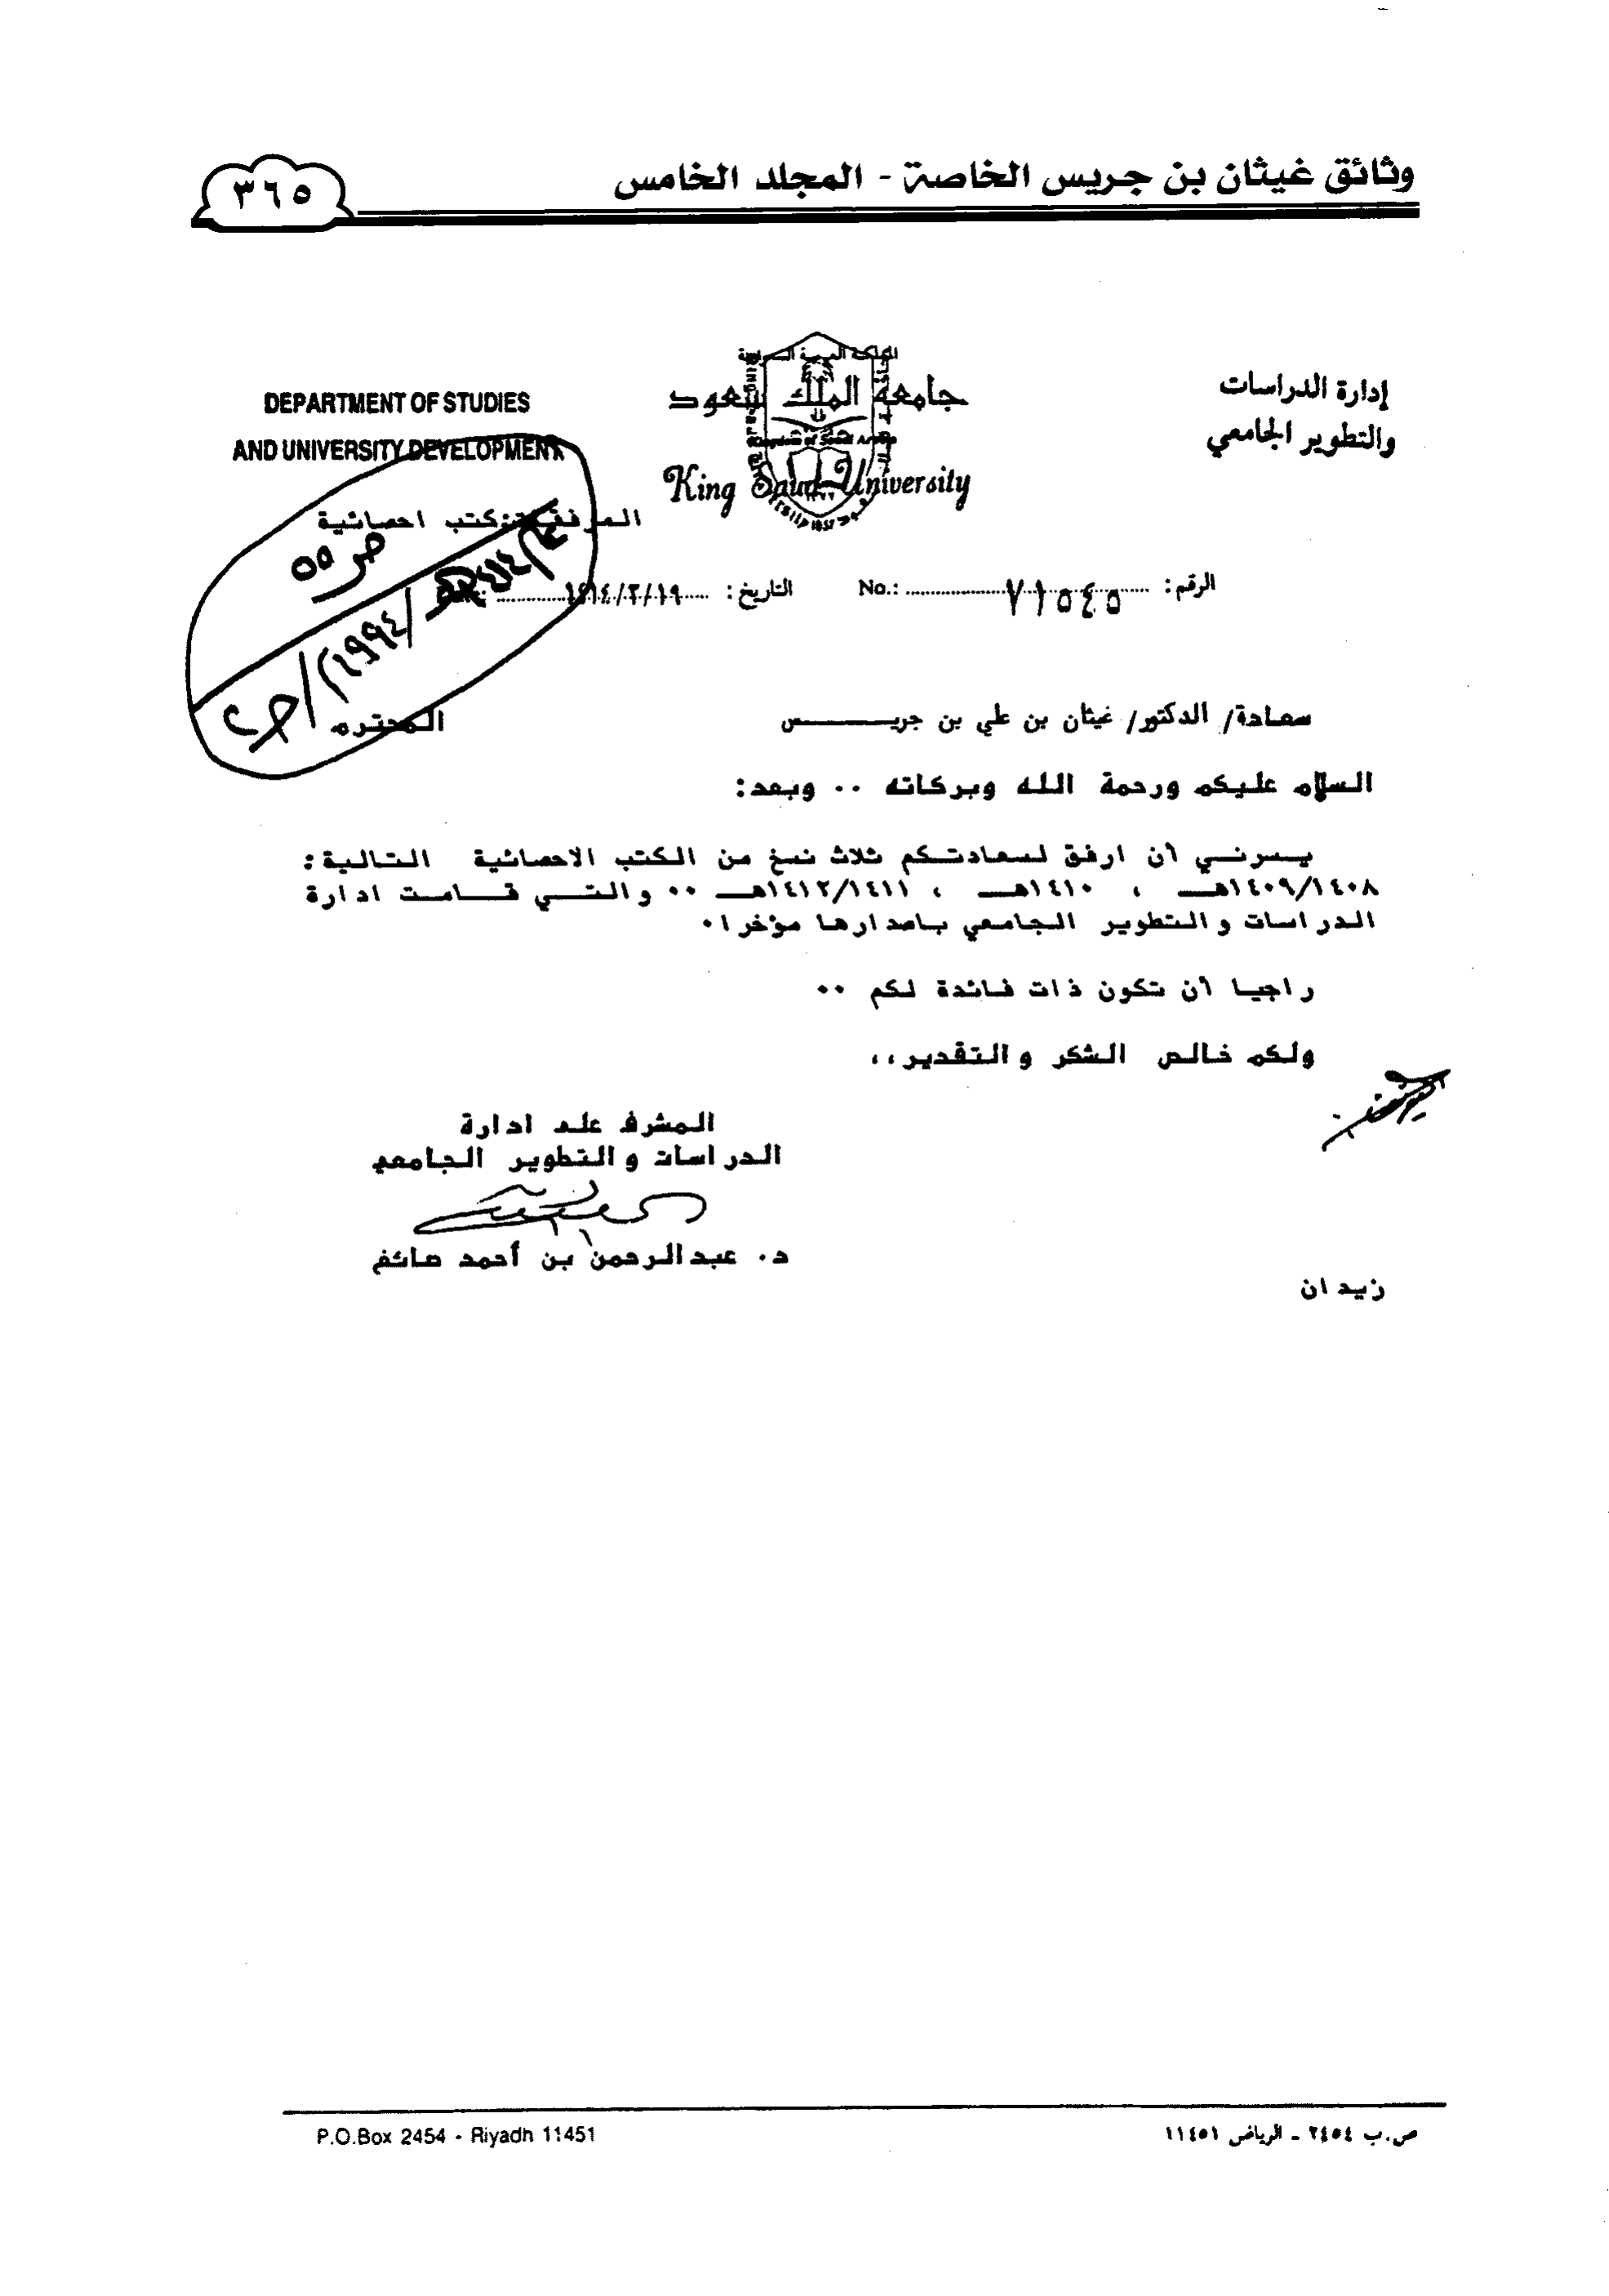 وثائق غيثان بن جريس الخاصة - المجلد الخامس
٣٦٥
إدارة الدراسات
والتطوير الجامعي
جامعة الملك سعود
King Saud University
DEPARTMENT OF STUDIES
AND UNIVERSITY DEVELOPMENT
كتب احصائية
ص ٥٥
الرقم: ٧١٥٤٥ No.:
التاريخ: ١٤١٤/٢/١٩
سعادة/ الدكتور/ غيثان بن علي بن جريـــــس المحترم
السلام عليكم ورحمة الله وبركاته .. وبعد:
يسرني أن ارفق لسعادتكم ثلاث نسخ من الكتب الاحصائية التالية:
١٤٠٩/١٤٠٨هـ ، ١٤١٠هـ ، ١٤١٢/١٤١١هـ .. والتي قامت ادارة
الدراسات والتطوير الجامعي باصدارها مؤخرا.
راجيا أن تكون ذات فائدة لكم ..
ولكم خالص الشكر والتقدير،،
المشرف على ادارة
الدراسات والتطوير الجامعي
د. عبدالرحمن بن أحمد صائغ
زيدان
ص.ب ٢٤٥٤ - الرياض ١١٤٥١
P.O.Box 2454 - Riyadh 11451